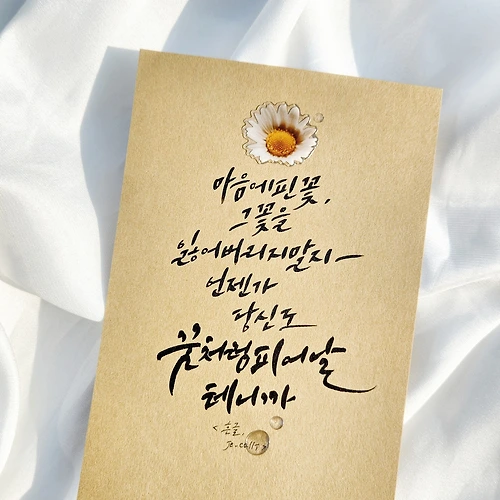 마음에핀꽃,
그꽃을
잃어버리지말지
언젠가
당신도
꿈처럼피어날
테니까